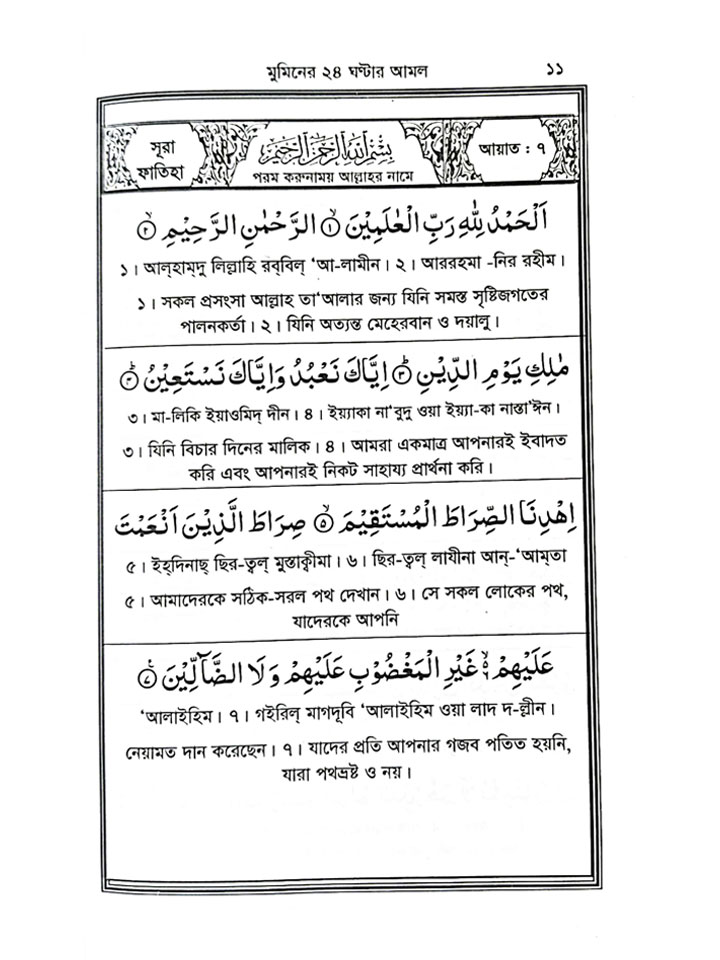 মুমিনের ২৪ ঘণ্টার আমল ১১
সূরা
ফাতিহা
بِسْمِ اللهِ الرَّحْمٰنِ الرَّحِيْمِ
পরম করুনাময় আল্লাহর নামে
আয়াত : ৭
اَلْحَمْدُ لِلّٰهِ رَبِّ الْعٰلَمِيْنَ ۙ﴿١﴾ الرَّحْمٰنِ الرَّحِيْمِ ۙ﴿٢﴾
১। আল্‌হাম্‌দু লিল্লাহি রব্‌বিল্‌ ‘আ-লামীন। ২। আররহমা -নির রহীম।
১। সকল প্রসংসা আল্লাহ তা‘আলার জন্য যিনি সমস্ত সৃষ্টিজগতের
পালনকর্তা। ২। যিনি অত্যন্ত মেহেরবান ও দয়ালু।
مٰلِكِ يَوْمِ الدِّيْنِ ؕ﴿٣﴾ اِيَّاكَ نَعْبُدُ وَاِيَّاكَ نَسْتَعِيْنُ ؕ﴿٤﴾
৩। মা-লিকি ইয়াওমিদ্‌ দীন। ৪। ইয়্যাকা না‘বুদু ওয়া ইয়্যা-কা নাস্তা‘ঈন।
৩। যিনি বিচার দিনের মালিক। ৪। আমরা একমাত্র আপনারই ইবাদত
করি এবং আপনারই নিকট সাহায্য প্রার্থনা করি।
اِهْدِنَا الصِّرَاطَ الْمُسْتَقِيْمَ ۙ﴿٥﴾ صِرَاطَ الَّذِيْنَ اَنْعَمْتَ
৫। ইহ্‌দিনাছ্‌ ছির-ত্বল্‌ মুস্তাক্বীমা। ৬। ছির-ত্বল্‌ লাযীনা আন্‌-‘আম্‌তা
৫। আমাদেরকে সঠিক-সরল পথ দেখান। ৬। সে সকল লোকের পথ,
যাদেরকে আপনি
عَلَيْهِمْ ۙ۬ۙ غَيْرِ الْمَغْضُوْبِ عَلَيْهِمْ وَلَا الضَّآلِّيْنَ ﴿٧﴾
‘আলাইহিম। ৭। গইরিল্‌ মাগদূবি ‘আলাইহিম ওয়া লাদ দ-ল্লীন।
নেয়ামত দান করেছেন। ৭। যাদের প্রতি আপনার গজব পতিত হয়নি,
যারা পথভ্রষ্ট ও নয়।